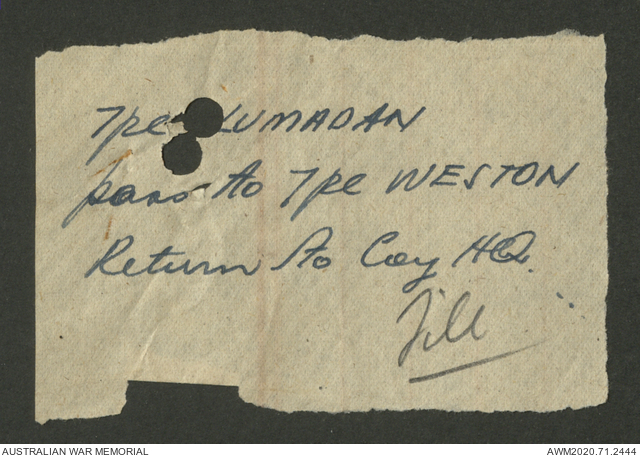 Tpe LUMADAN
pass to Tpe WESTON
Return to Coy HQ.
File
AUSTRALIAN WAR MEMORIAL
AWM2020.71.2444